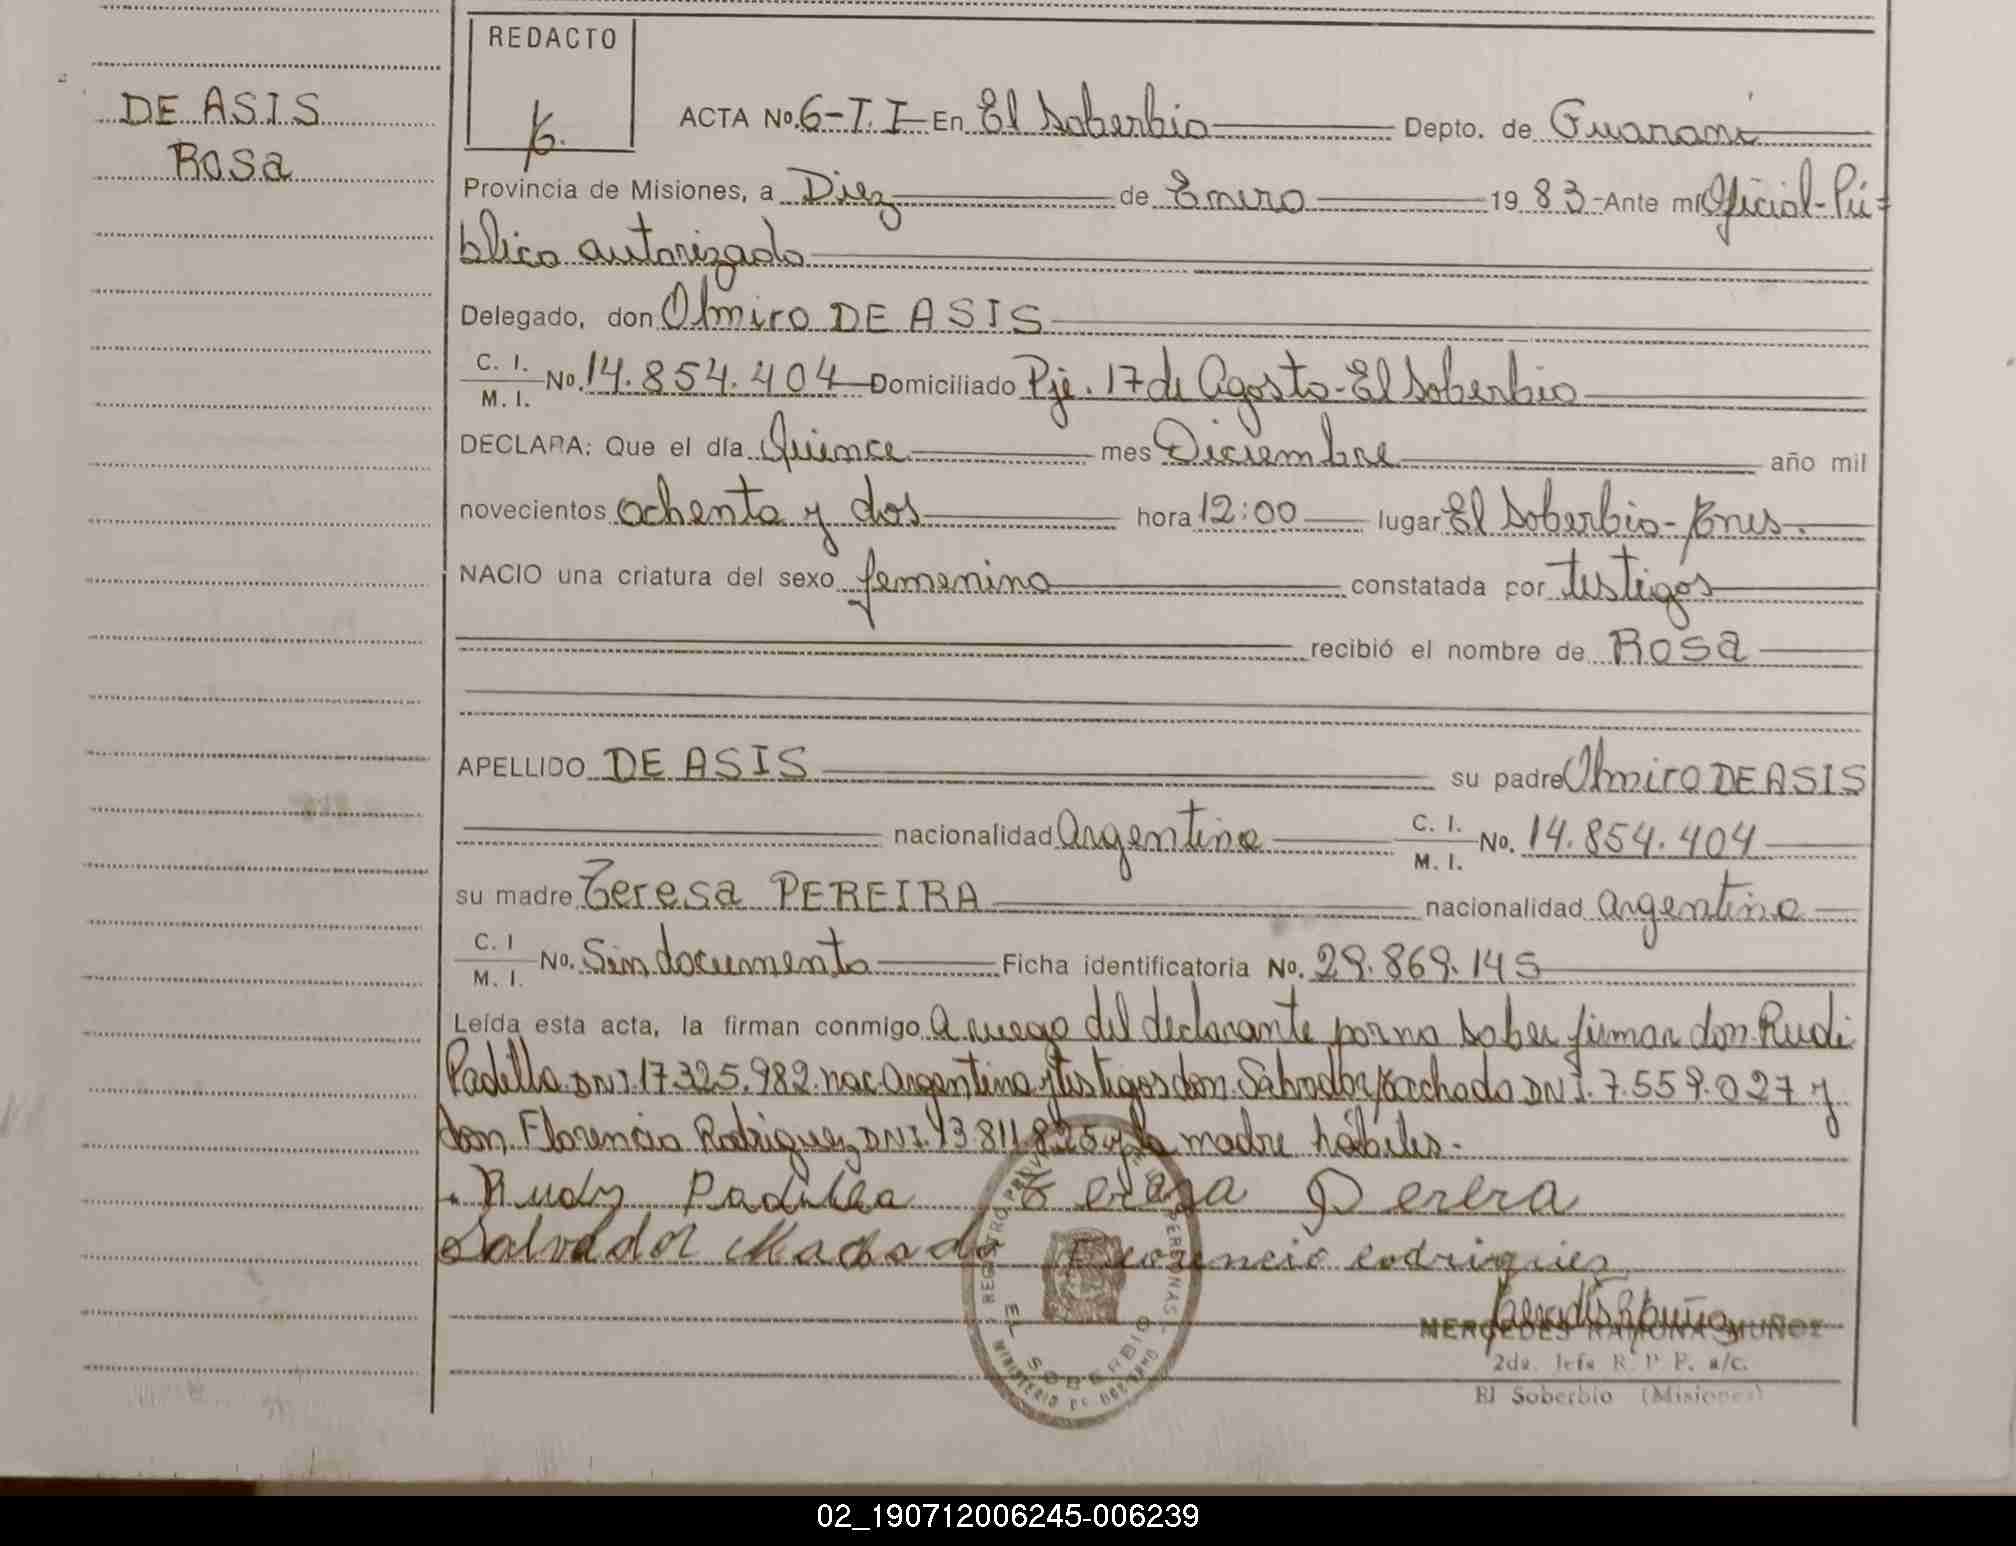 REDACTO
DE ASIS
Rosa
6.
ACTA No. 6-T.I En El Soberbio Depto. de Guaraní
Provincia de Misiones, a Diez de Enero 19 83 - Ante mi Oficial-Pú=
blico autorizado
Delegado, don Olmiro DE ASIS
C. I.
M. I. No. 14.854.404 Domiciliado Pje. 17 de Agosto - El Soberbio
DECLARA: Que el día Quince mes Diciembre año mil
novecientos ochenta y dos hora 12:00 lugar El Soberbio - Mnes.
NACIO una criatura del sexo femenino constatada por testigos
recibió el nombre de Rosa
APELLIDO DE ASIS su padre Olmiro DE ASIS
nacionalidad Argentina C. I.
M. I. No. 14.854.404
su madre Teresa PEREIRA nacionalidad Argentina
C. I
M. I. No. Sin documento Ficha identificatoria No. 29.869.145
Leída esta acta, la firman conmigo A ruego del declarante por no saber firmar don Rudi
Padilla DNI. 17.325.982 nac. Argentina y testigos don Salvador Machado DNI. 7.559.027 y
don Florencio Rodriguez DNI. 13.811.825 y la madre hábiles.-
Rudy Padilla Teresa Perera
Salvador Machado Florencio rodriguez
MERCEDES RAMONA MUÑOZ
2da. Jefa R. P. P. a/c.
El Soberbio (Misiones)
REGISTRO PROVINCIAL DE LAS PERSONAS
EL SOBERBIO
MINISTERIO DE GOBIERNO
02_190712006245-006239